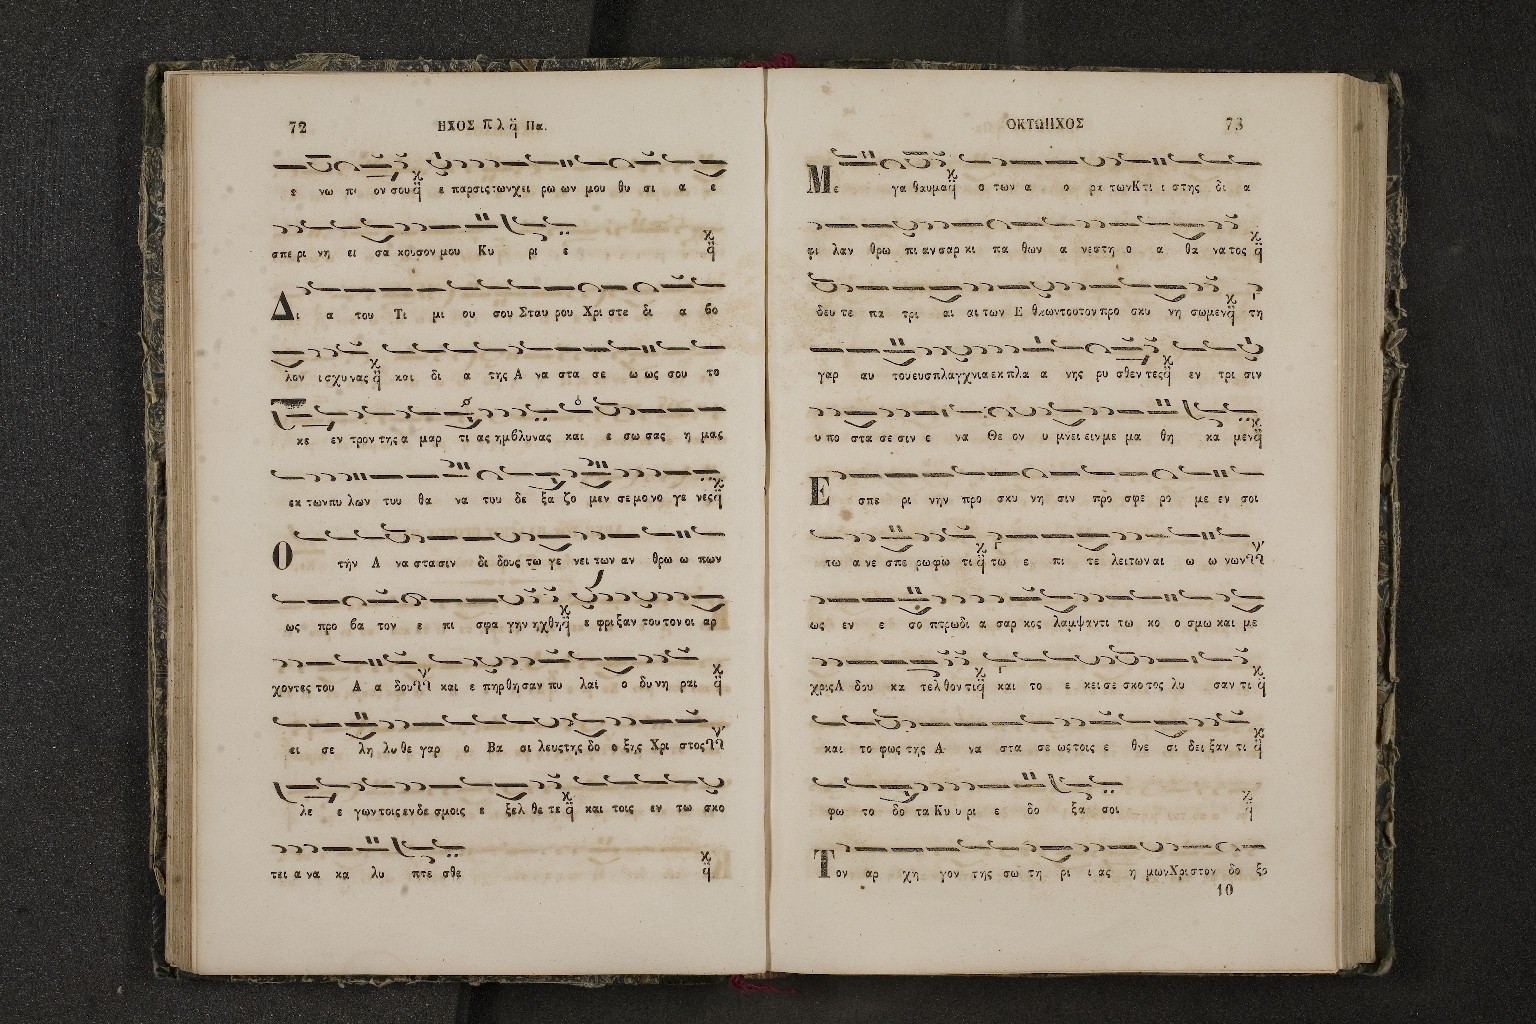 72
ΗΧΟΣ πλ ᾳ Πα.
ε νω πι ον σου ε παρσις των χει ρω ων μου θυ σι α ε
σπε ρι νη ει σα κουσον μου Κυ ρι ε
Δι α του Τι μι ου σου Σταυ ρου Χρι στε δι α βο
λον ισχυνας και δι α της Α να στα σε ω ως σου το
κε εν τρον της α μαρ τι ας ημβλυνας και ε σω σας η μας
εκ των πυ λων του θα να του δε ξα ζο μεν σε μο νο γε νες
Ο την Α να στα σιν δι δους τω γε νει των αν θρω ω πων
ως προ βα τον ε πι σφα γην ηχθη ε φριξαν τουτον οι αρ
χοντες του Α α δου και ε πηρθησαν πυ λαι ο δυνη ραι
ει σε λη λυθε γαρ ο Βα σι λευς της δο ο ξης Χρι στος
λε ε γων τοις εν δε σμοις ε ξελ θε τε και τοις εν τω σκο
τει α να κα λυ πτε σθε
ΟΚΤΩΗΧΟΣ
73
Με γα θαυμα ο των α ο ρα των Κτι ι στης δι α
φι λαν θρω πι αν σαρ κι πα θων α νεστη ο α θα να τος
δευ τε πα τρι αι αι των Ε θνων τουτον προ σκυ νη σωμεν τη
γαρ αυ του ευσπλαγχνια εκ πλα α νης ρυ σθεν τες εν τρι σιν
υ πο στα σε σιν ε να Θε ον υ μνει ειν με μα θη κα μεν
Ε σπε ρι νην προ σκυ νη σιν προ σφε ρο με εν σοι
τω α νε σπε ρω φω τι τω ε πι τε λει των αι ω ω νων
ως εν ε σο πτρω δι α σαρ κος λαμψαντι τω κο ο σμω και με
χρις Α δου κα τελθοντι και το ε κει σε σκοτος λυ σαν τι
και το φως της Α να στα σε ως τοις ε θνε σι δει ξαν τι
φω το δο τα Κυ υ ρι ε δο ξα σοι
Τον αρ χη γον της σω τη ρι ι ας η μων Χριστον δο ξο
10